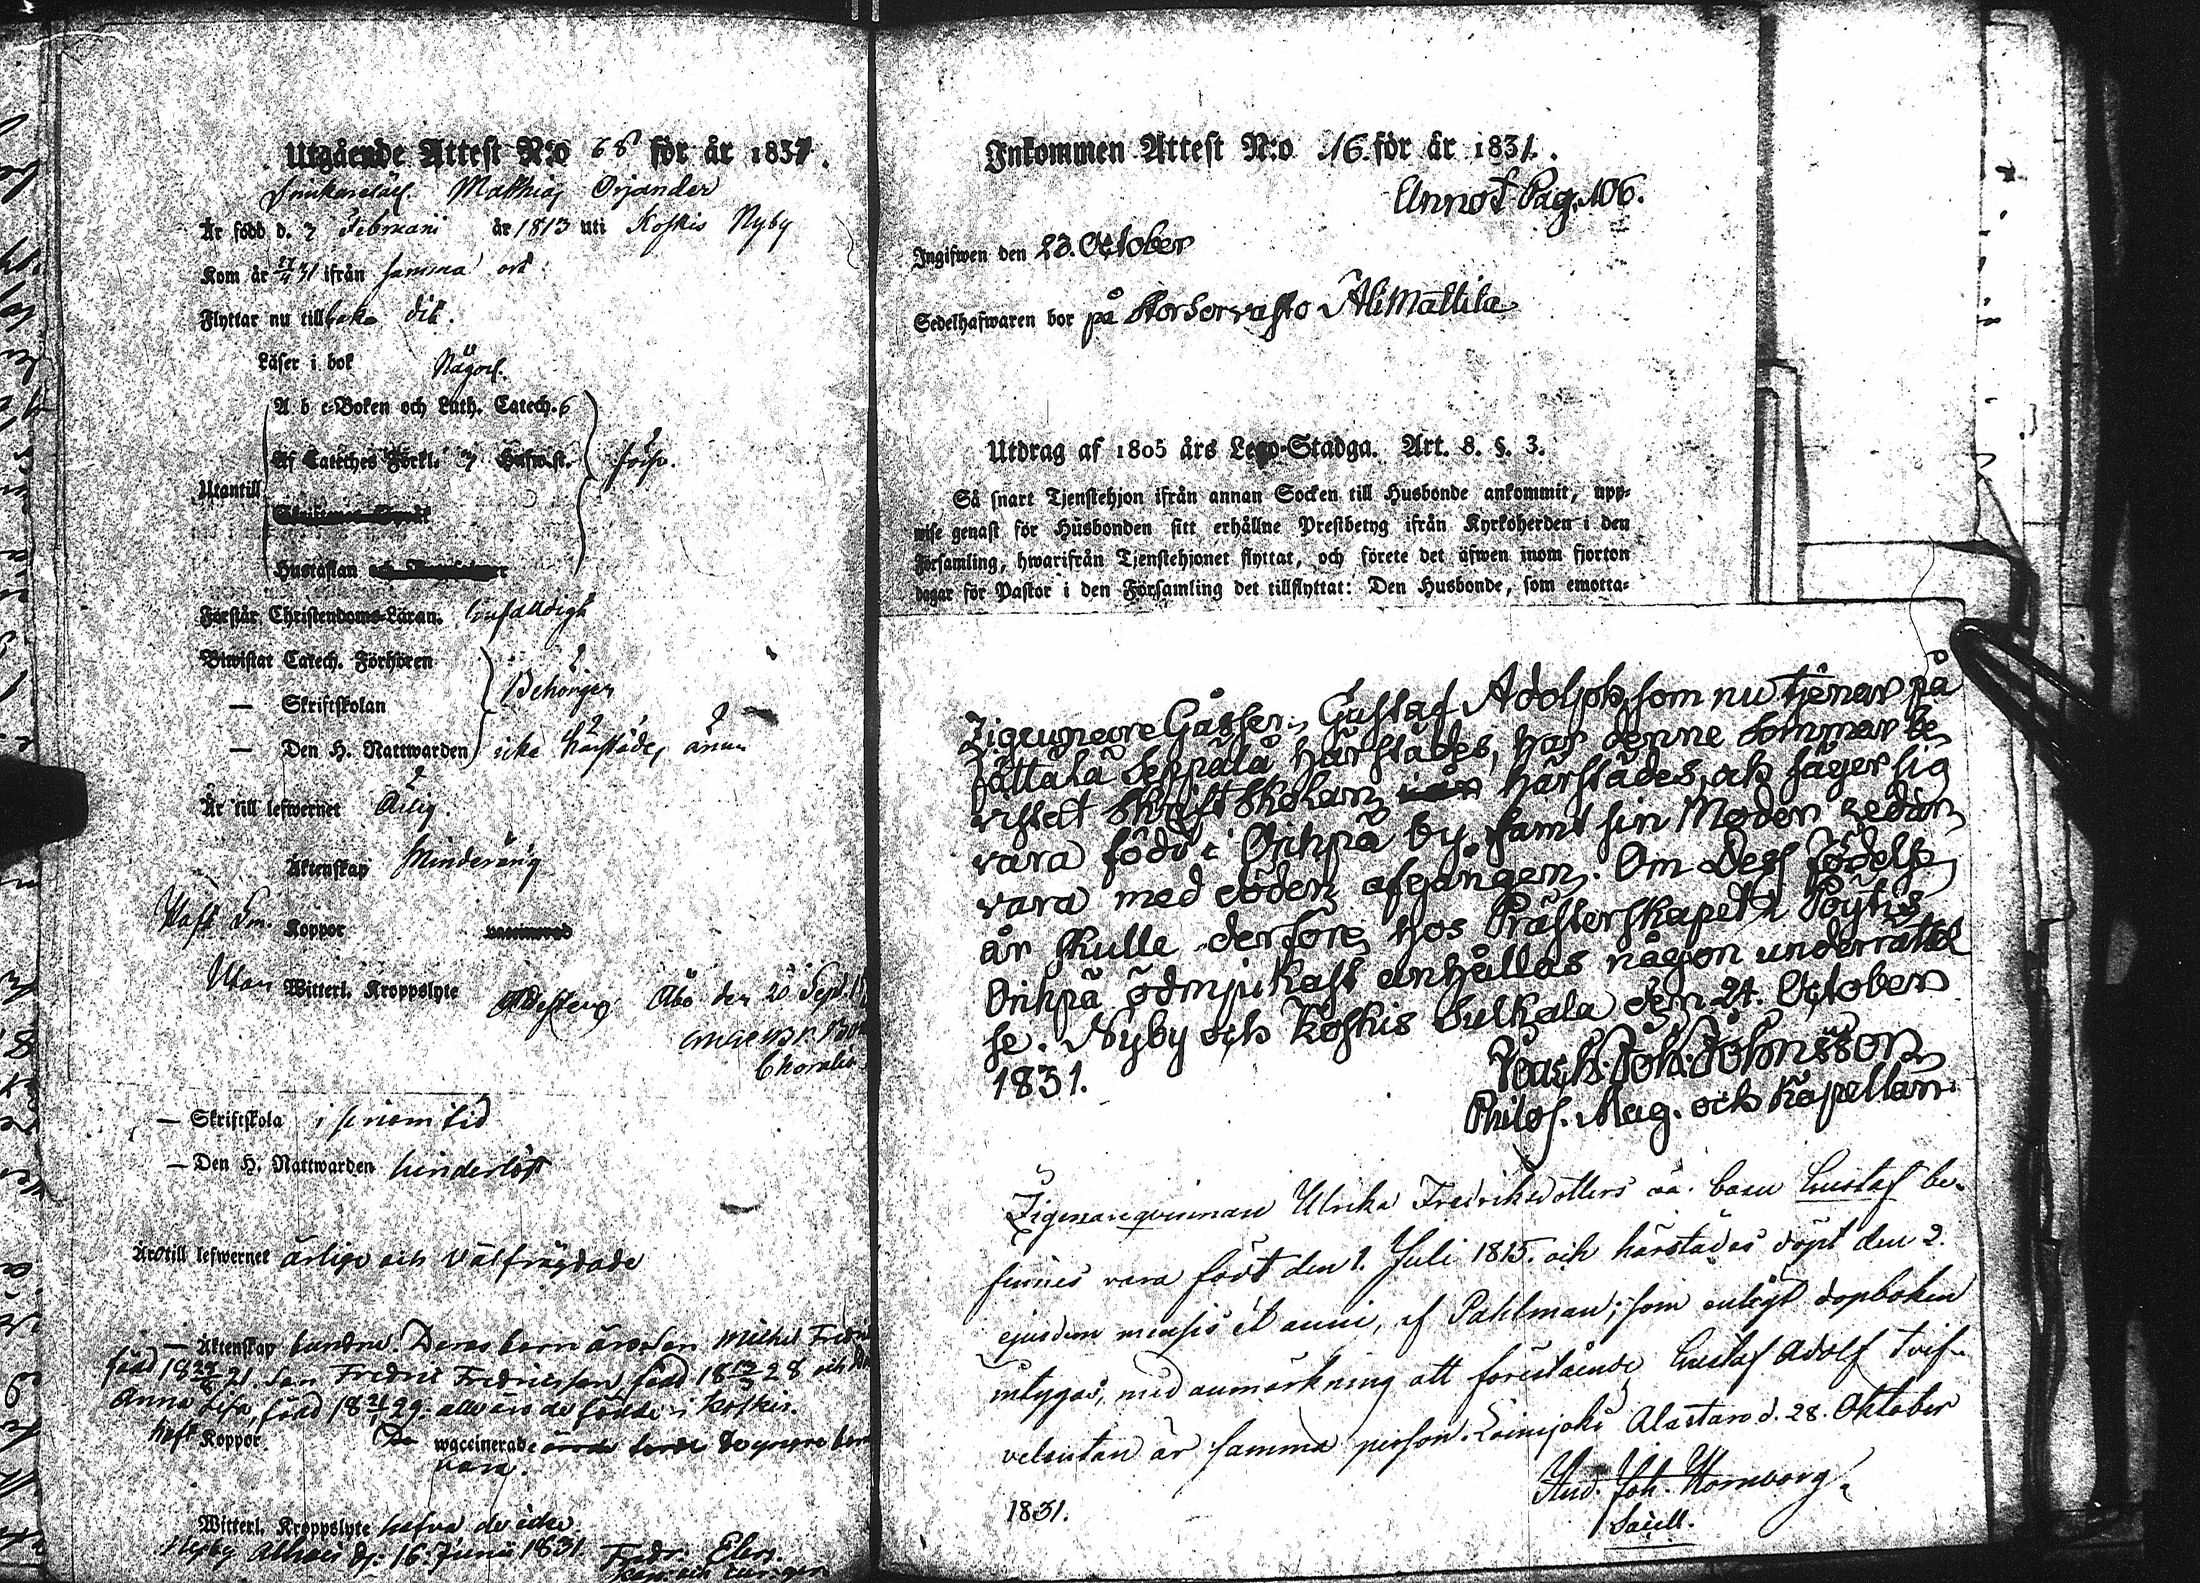 Utgående Attest N:o 68 för år 1831.
Mathias Orjander
Är född d. 7 Februarii år 1813 uti Koskis Nyby
Kom år 31 ifrån samma ort
Flyttar nu tillbaka dit.
Läser i bok Någorl.
A b c-Boken och Luth. Catech. 6
Af Cateches Förkl. 7 Hufwst.
Utantill
Hustaflan
Förstår Christendoms-Läran. Enfaldigt
Biwistat Catech. Förhören
— Skriftskolan Behörigen
— Den H. Nattwarden icke härstädes ännu
Är till lefwernet Ärlig.
Äktenskap Minderårig
Haft Koppor
Utan Witterl. Kroppslyte Åbo den 20 Sept.
— Skriftskola i sinom tid
— Den H. Nattwarden hinderlöst
Äro till lefwernet ärlige och välfrägdade
— Äktenskap bundne. Deras barn äro Son Michel
född 18 21. Son Fredric Fredricsson född 18 28 och
Anna Lisa, född 18 29. alla äro de födde i Koskis.
haft Koppor. De waccinerade
vara.
Witterl. Kroppslyte hafva de icke
Nyby d. 16 Junii 1831. Fredr.
Inkommen Attest N:o 16. för år 1831.
Annot. Pag. 106.
Ingifwen den 23. October
Sedelhafwaren bor på Storsorvasto AliMattila
Utdrag af 1805 års Lego-Stadga. Art. 8. §. 3.
Så snart Tjenstehjon ifrån annan Socken till Husbonde ankommit, upp-
wise genast för Husbonden sitt erhållne Prestbetyg ifrån Kyrkoherden i den
Församling, hwarifrån Tjenstehjonet flyttat, och förete det äfwen inom fjorton
dagar för Pastor i den Församling det tillflyttat: Den Husbonde, som emotta-
Zigeunare Gåssen, Gustaf Adolph, som nu tjenar på
Sättälä Seppälä härstädes, har denne Sommar be
vistat Skriftskolan härstädes, och säger sig
vara född i Orihpä by, samt sin Moder redan
vara med döden afgången. Om Dess Födelse
år skulle derföre hos Prästerskapet i Pöytis
Orihpä ödmjukast anhållas någon underrättel
se. Nyby och Koskis Sulkala den 24. October
1831. Joach. Joh. Johnsson
Philos. Mag. och Kapellan.
Zigenareqvinnan Ulrika Fredriksdotters oä. barn Gustaf be-
finnes vara född den 1. Juli 1815. och härstädes döpt den 2.
ejusdem mensis et anni, af Pahlman; som enligt dopboken
intygas, med anmärkning att förestående Gustaf Adolf tvif-
velsutan är samma person. Loimijoki Alastaro d. 28. Oktober
1831.
Joh.
Sacell.